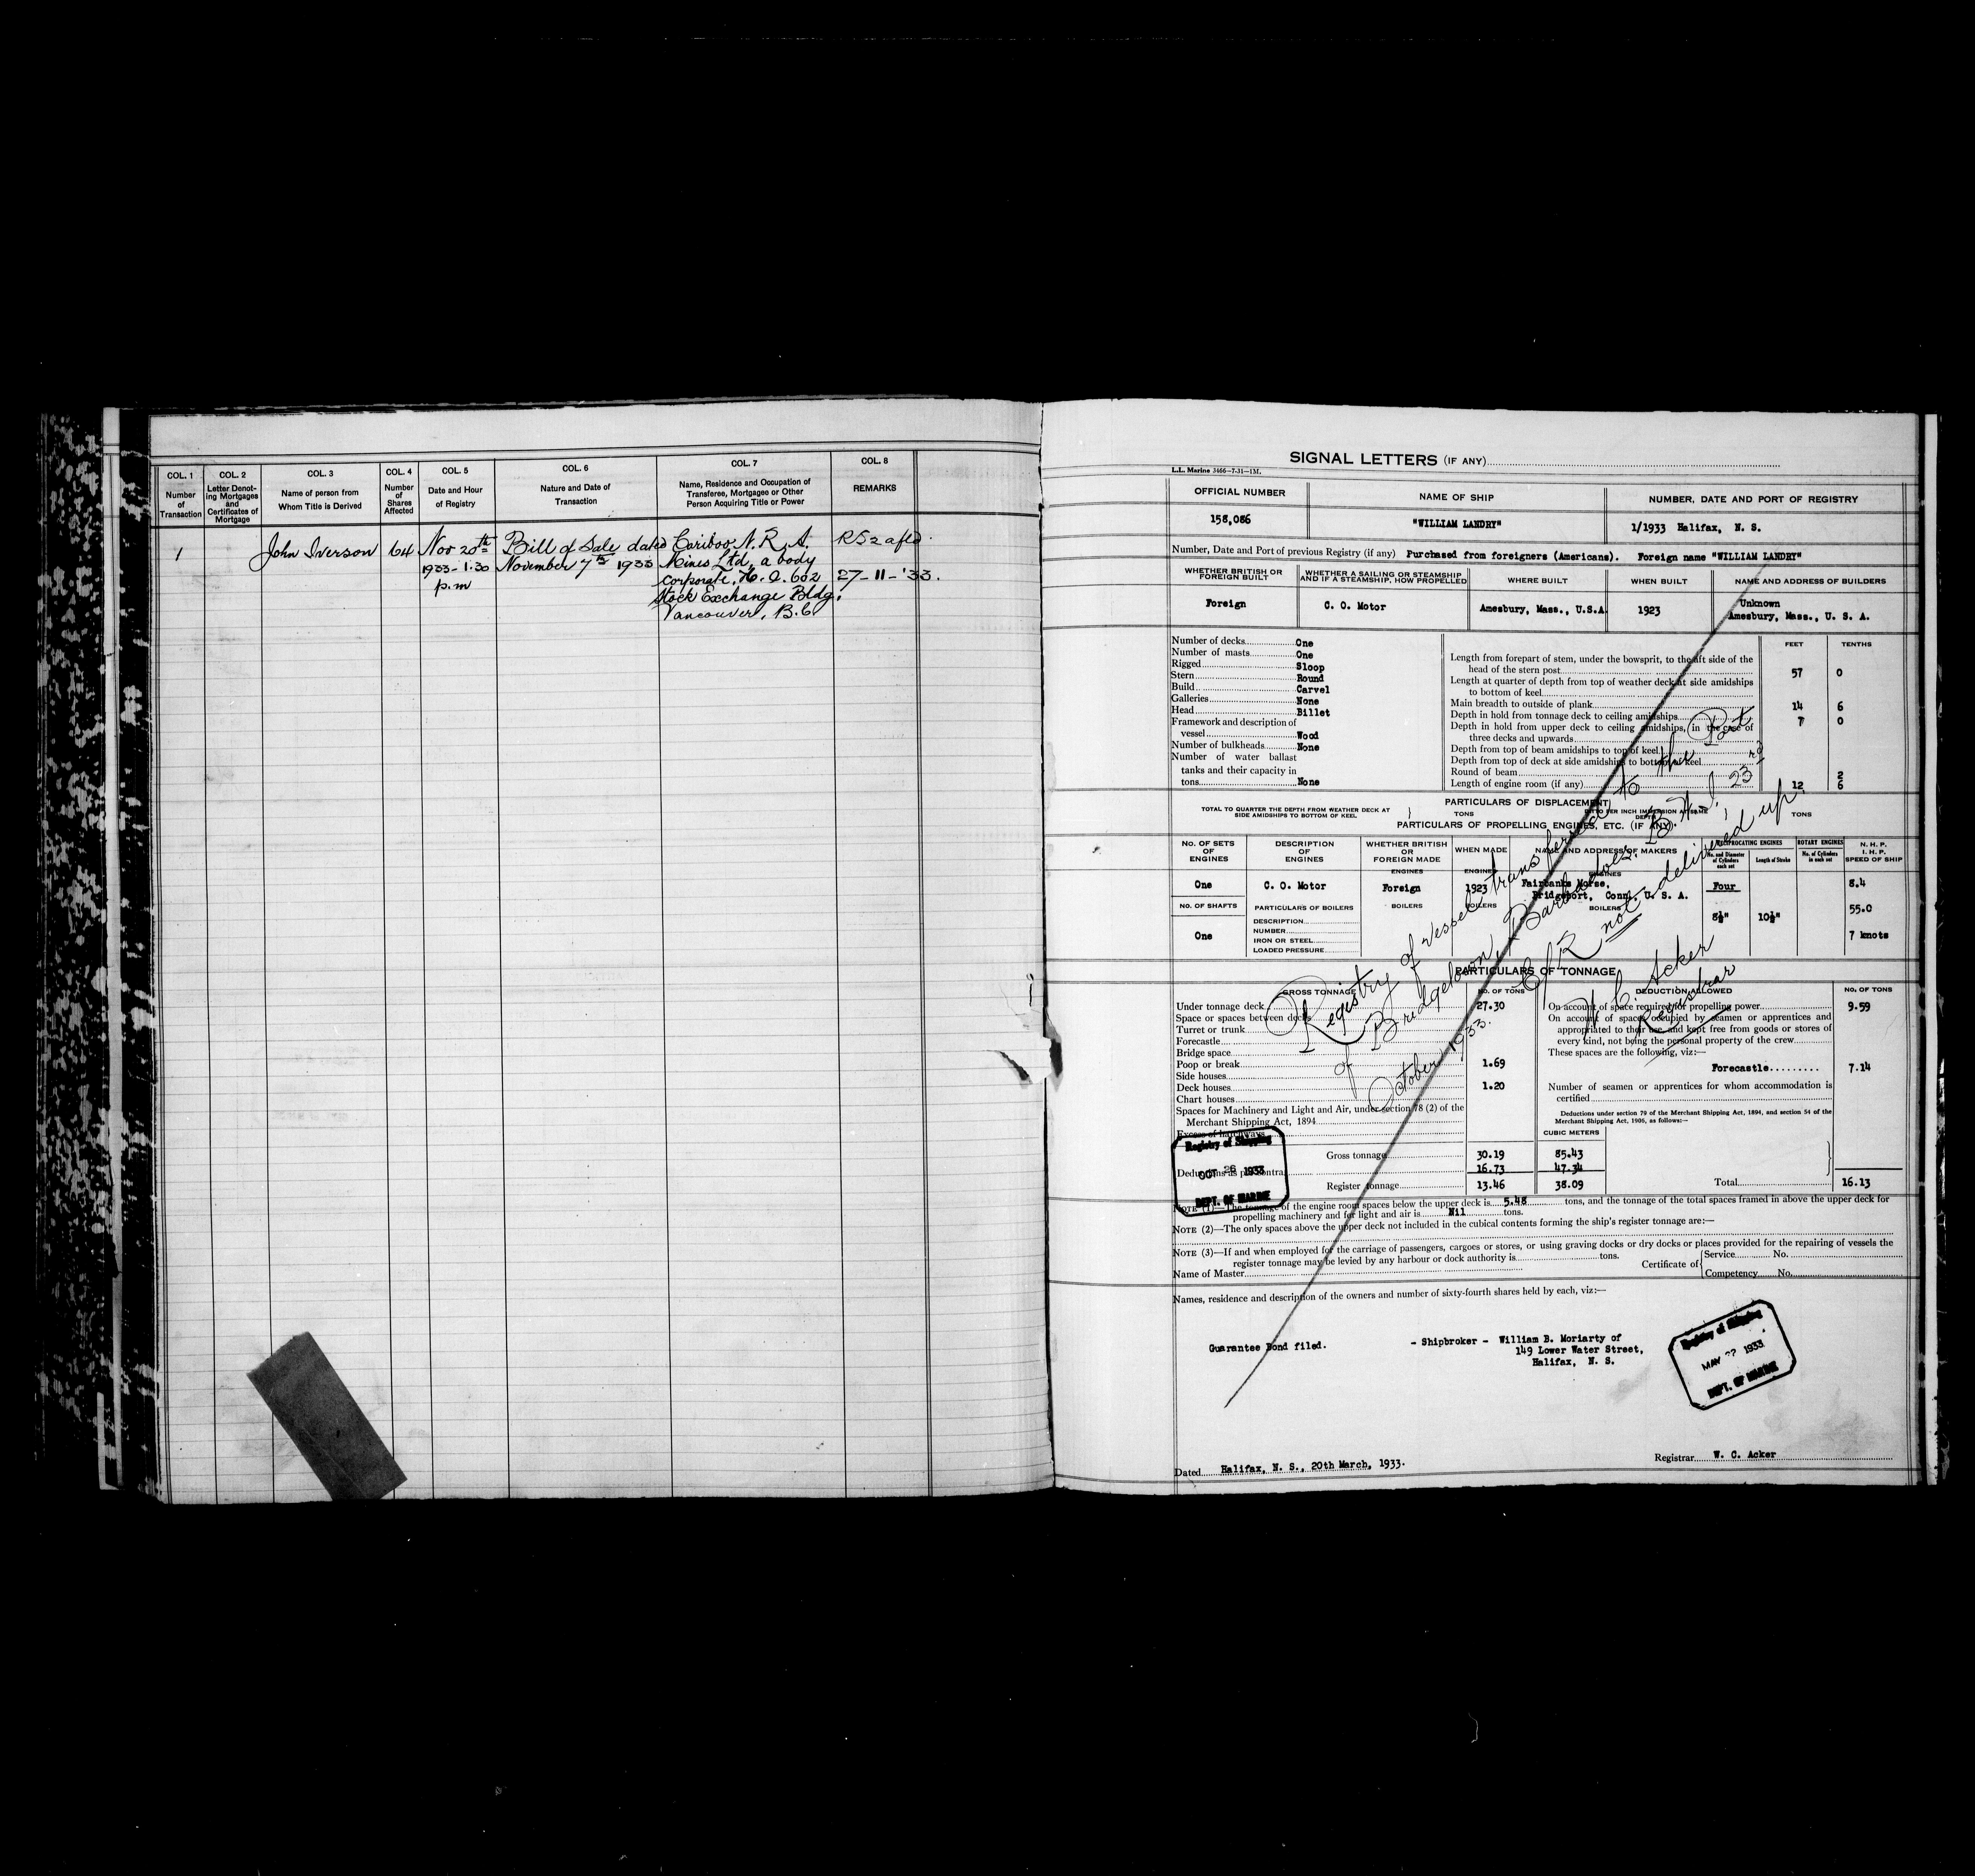 COL. 1
Number
of
Transaction
COL. 2
Letter Denot-
ing Mortgages
and
Certificates of
Mortgage
COL. 3
Name of person from
Whom Title is Derived
COL. 4
Number
of
Shares
Affected
COL. 5
Date and Hour
of Registry
COL. 6
Nature and Date of
Transaction
COL. 7
Name, Residence and Occupation of
Transferee, Mortgagee or Other
Person Acquiring Title or Power
COL. 8
REMARKS
1
John Iverson
64
Nov 20th
1933 - 1.30
p.m
Bill of Sale dated
November 7th 1933
Cariboo N. R. A.
Mines Ltd, a body
corporate, H. O. 602
Stock Exchange Bldg.
Vancouver, B.C.
RS2 afld.
27-11-'33.
SIGNAL LETTERS (IF ANY)
L.L. Marine 3466-7-31-1M.
OFFICIAL NUMBER
NAME OF SHIP
NUMBER, DATE AND PORT OF REGISTRY
158,086
"WILLIAM LANDRY"
1/1933 Halifax, N. S.
Number, Date and Port of previous Registry (if any) Purchased from foreigners (Americans). Foreign name "WILLIAM LANDRY"
WHETHER BRITISH OR
FOREIGN BUILT
WHETHER A SAILING OR STEAMSHIP
AND IF A STEAMSHIP, HOW PROPELLED
WHERE BUILT
WHEN BUILT
NAME AND ADDRESS OF BUILDERS
Foreign
C. O. Motor
Amesbury, Mass., U.S.A.
1923
Unknown
Amesbury, Mass., U. S. A.
Number of decks One
Number of masts One
Rigged Sloop
Stern Round
Build Carvel
Galleries None
Head Billet
Framework and description of
vessel Wood
Number of bulkheads None
Number of water ballast
tanks and their capacity in
tons None
FEET
TENTHS
Length from forepart of stem, under the bowsprit, to the aft side of the
head of the stern post 57 0
Length at quarter of depth from top of weather deck at side amidships
to bottom of keel
Main breadth to outside of plank 14 6
Depth in hold from tonnage deck to ceiling amidships 7 0
Depth in hold from upper deck to ceiling amidships, in the case of
three decks and upwards
Depth from top of beam amidships to top of keel
Depth from top of deck at side amidships to bottom of keel
Round of beam 2
Length of engine room (if any) 12 6
PARTICULARS OF DISPLACEMENT
TOTAL TO QUARTER THE DEPTH FROM WEATHER DECK AT
SIDE AMIDSHIPS TO BOTTOM OF KEEL
TONS
DITTO PER INCH IMMERSION AT SAME
DEPTH
TONS
PARTICULARS OF PROPELLING ENGINES, ETC. (IF ANY).
NO. OF SETS
OF
ENGINES
DESCRIPTION
OF
ENGINES
WHETHER BRITISH
OR
FOREIGN MADE
WHEN MADE
NAME AND ADDRESS OF MAKERS
RECIPROCATING ENGINES
No. and Diameter
of Cylinders
each set
Length of Stroke
ROTARY ENGINES
No. of Cylinders
in each set
N. H. P.
I. H. P.
SPEED OF SHIP
ENGINES
ENGINES
ENGINES
One
C. O. Motor
Foreign
1923
Fairbanks Morse,
Bridgeport, Conn. U. S. A.
Four
8.4
NO. OF SHAFTS
PARTICULARS OF BOILERS
BOILERS
BOILERS
BOILERS
8½"
10½"
55.0
DESCRIPTION
NUMBER
IRON OR STEEL
LOADED PRESSURE
One
7 knots
PARTICULARS OF TONNAGE
GROSS TONNAGE
NO. OF TONS
DEDUCTION ALLOWED
NO. OF TONS
Under tonnage deck 27.30
Space or spaces between decks
Turret or trunk
Forecastle
Bridge space
Poop or break 1.69
Side houses
Deck houses 1.20
Chart houses
Spaces for Machinery and Light and Air, under section 78 (2) of the
Merchant Shipping Act, 1894
Excess of hatchways
On account of space required for propelling power 9.59
On account of spaces occupied by seamen or apprentices and
appropriated to their use and kept free from goods or stores of
every kind, not being the personal property of the crew
These spaces are the following, viz:—
Forecastle......... 7.14
Number of seamen or apprentices for whom accommodation is
certified
Deductions under section 79 of the Merchant Shipping Act, 1894, and section 54 of the
Merchant Shipping Act, 1906, as follows:—
CUBIC METERS
Gross tonnage 30.19 85.43
Deductions as per contra 16.73 47.34
Register tonnage 13.46 38.09
Total 16.13
Registry of Shipping
OCT 26 1933
DEPT. OF MARINE
Registry of vessel transferred to the Port
of Bridgetown, Barbadoes. B.W.I. 23rd
October 1933. C/R not delivered up.
W C. Acker
Registrar
NOTE (1)—The tonnage of the engine room spaces below the upper deck is 5.48 tons, and the tonnage of the total spaces framed in above the upper deck for
propelling machinery and for light and air is Nil tons.
NOTE (2)—The only spaces above the upper deck not included in the cubical contents forming the ship's register tonnage are:—
NOTE (3)—If and when employed for the carriage of passengers, cargoes or stores, or using graving docks or dry docks or places provided for the repairing of vessels the
register tonnage may be levied by any harbour or dock authority is tons.
Name of Master
Certificate of
Service No.
Competency No.
Names, residence and description of the owners and number of sixty-fourth shares held by each, viz:—
Guarantee Bond filed.
- Shipbroker - William B. Moriarty of
149 Lower Water Street,
Halifax, N. S.
Registry of Shipping
MAY 1933
DEPT. OF MARINE
Dated Halifax, N. S., 20th March, 1933.
Registrar W. C. Acker